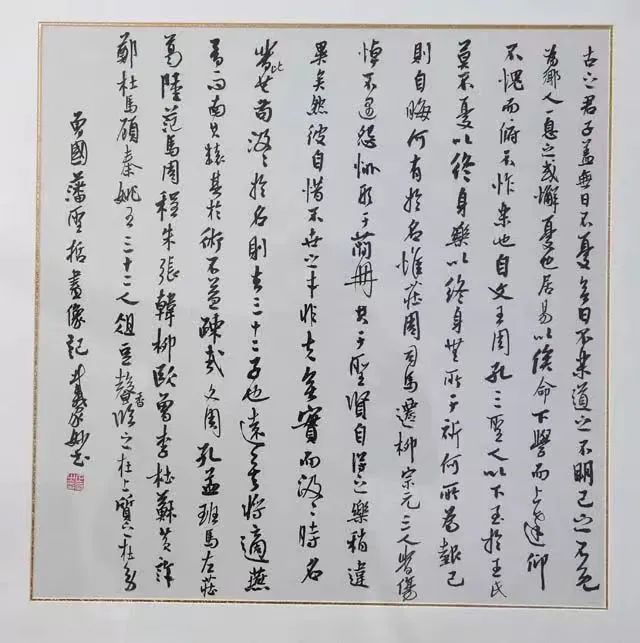 古之君子盖無日不憂無日不樂道之不明己之不免
為鄉人一息之或懈憂也居易以俟命下學而上達仰
不愧而俯不怍樂也自文王周孔三聖人以下至於王氏
莫不憂以終身樂以終身無所于祈何所為報己
則自晦何有於名惟莊周司馬遷柳宗元三人者傷
悼不遇怨悱形于簡冊其于聖賢自得之樂稍違
異矣然彼自惜不世之才非夫無實而汲〻時名
者比也苟汲〻於名則去三十二子也遠矣將適燕
晋而南其轅其於術不益疎哉文周孔孟班馬左莊
葛陸范馬周程朱張韓柳歐曾李杜蘇黄許
鄭杜馬顧秦姚王三十二人俎豆馨香臨之在上質之在旁
曾國藩聖哲畫像記